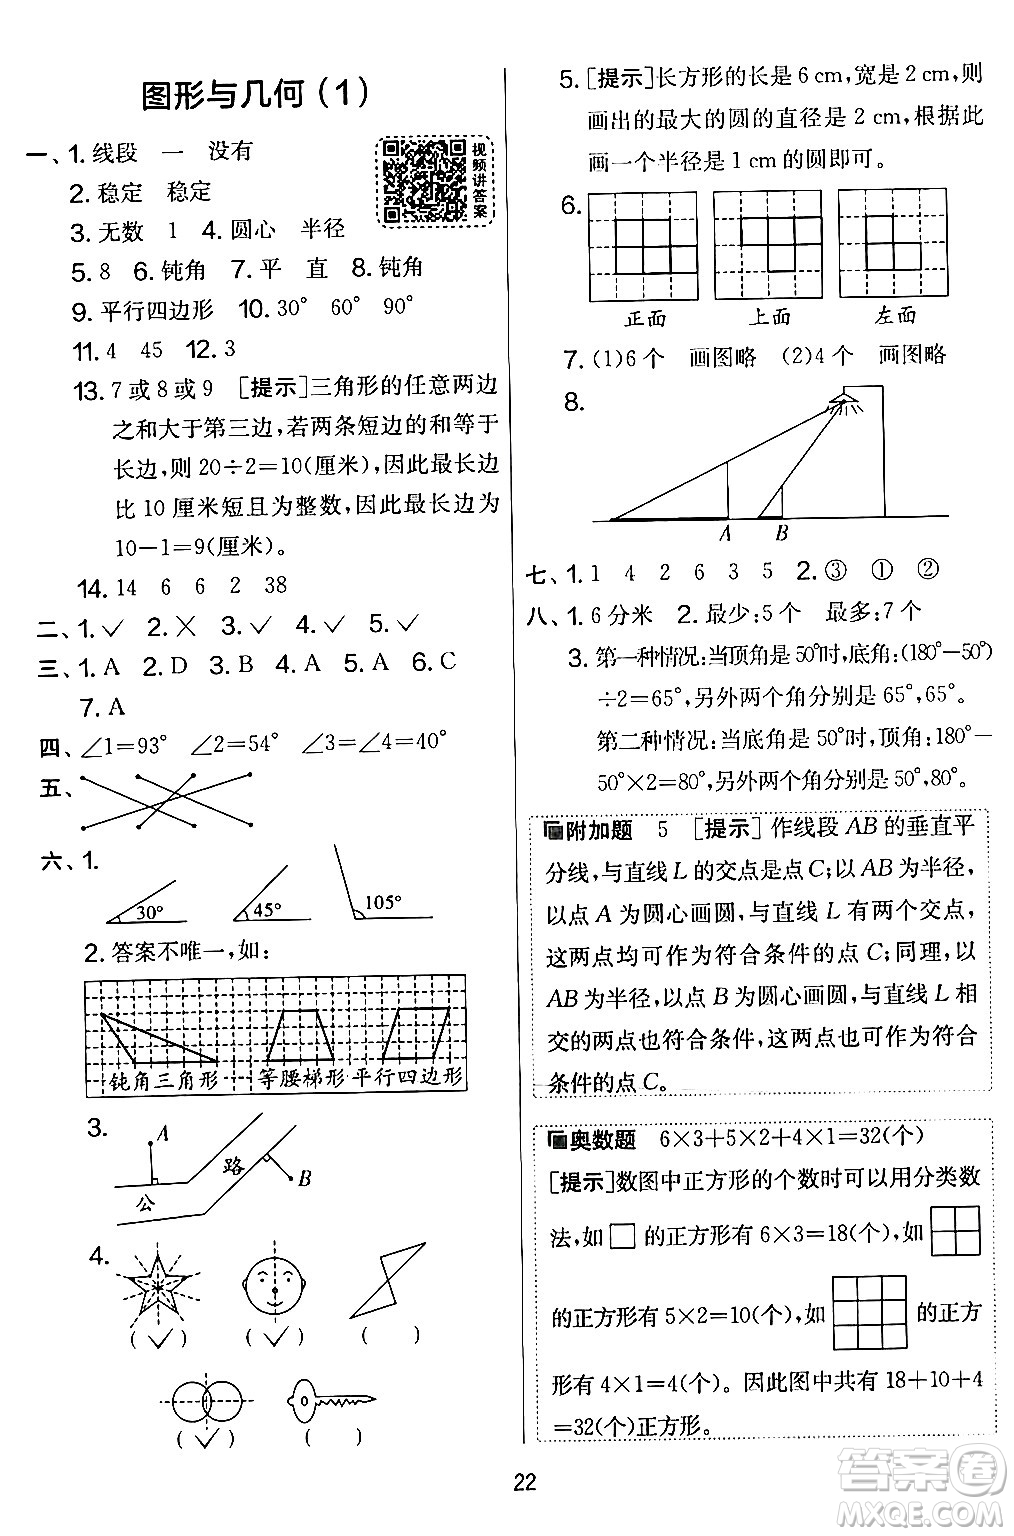 图形与几何(1)
一、1. 线段 一 没有
2. 稳定 稳定
3. 无数 1 4. 圆心 半径
视频讲答案
5. 8 6. 钝角 7. 平 直 8. 钝角
9. 平行四边形 10. 30° 60° 90°
11. 4 45 12. 3
13. 7或8或9 [提示]三角形的任意两边
之和大于第三边,若两条短边的和等于
长边,则20÷2=10(厘米),因此最长边
比10厘米短且为整数,因此最长边为
10-1=9(厘米)。
14. 14 6 6 2 38
二、1. ✓ 2. ✕ 3. ✓ 4. ✓ 5. ✓
三、1. A 2. D 3. B 4. A 5. A 6. C
7. A
四、∠1=93° ∠2=54° ∠3=∠4=40°
五、
六、1.
30° 45° 105°
2. 答案不唯一,如:
钝角三角形 等腰梯形 平行四边形
3. A
路 B
公
4.
(✓) (✓) ( )
(✓) ( )
5. [提示]长方形的长是6 cm,宽是2 cm,则
画出的最大的圆的直径是2 cm,根据此
画一个半径是1 cm的圆即可。
6.
正面 上面 左面
7. (1)6个 画图略 (2)4个 画图略
8.
A B
七、1. 1 4 2 6 3 5 2. ③ ① ②
八、1. 6分米 2. 最少:5个 最多:7个
3. 第一种情况:当顶角是50°时,底角:(180°-50°)
÷2=65°,另外两个角分别是65°,65°。
第二种情况:当底角是50°时,顶角:180°-
50°×2=80°,另外两个角分别是50°,80°。
附加题 5 [提示]作线段AB的垂直平
分线,与直线L的交点是点C;以AB为半径,
以点A为圆心画圆,与直线L有两个交点,
这两点均可作为符合条件的点C;同理,以
AB为半径,以点B为圆心画圆,与直线L相
交的两点也符合条件,这两点也可作为符合
条件的点C。
奥数题 6×3+5×2+4×1=32(个)
[提示]数图中正方形的个数时可以用分类数
法,如□的正方形有6×3=18(个),如
的正方形有5×2=10(个),如 的正方
形有4×1=4(个)。因此图中共有18+10+4
=32(个)正方形。
22
答案圈
MXQE.COM